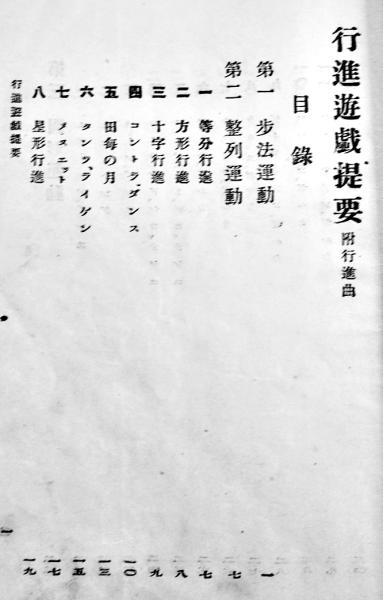 行進遊戯提要 附行進曲
目錄
第一 步法運動 一
第二 整列運動 七
一 等分行進 七
二 方形行進 八
三 十字行進 九
四 コントラ、ダンス 一〇
五 田每の月 一三
六 タンツ、ライゲン 一五
七 メヌエット 一七
八 星形行進 一九
行進遊戯提要
一